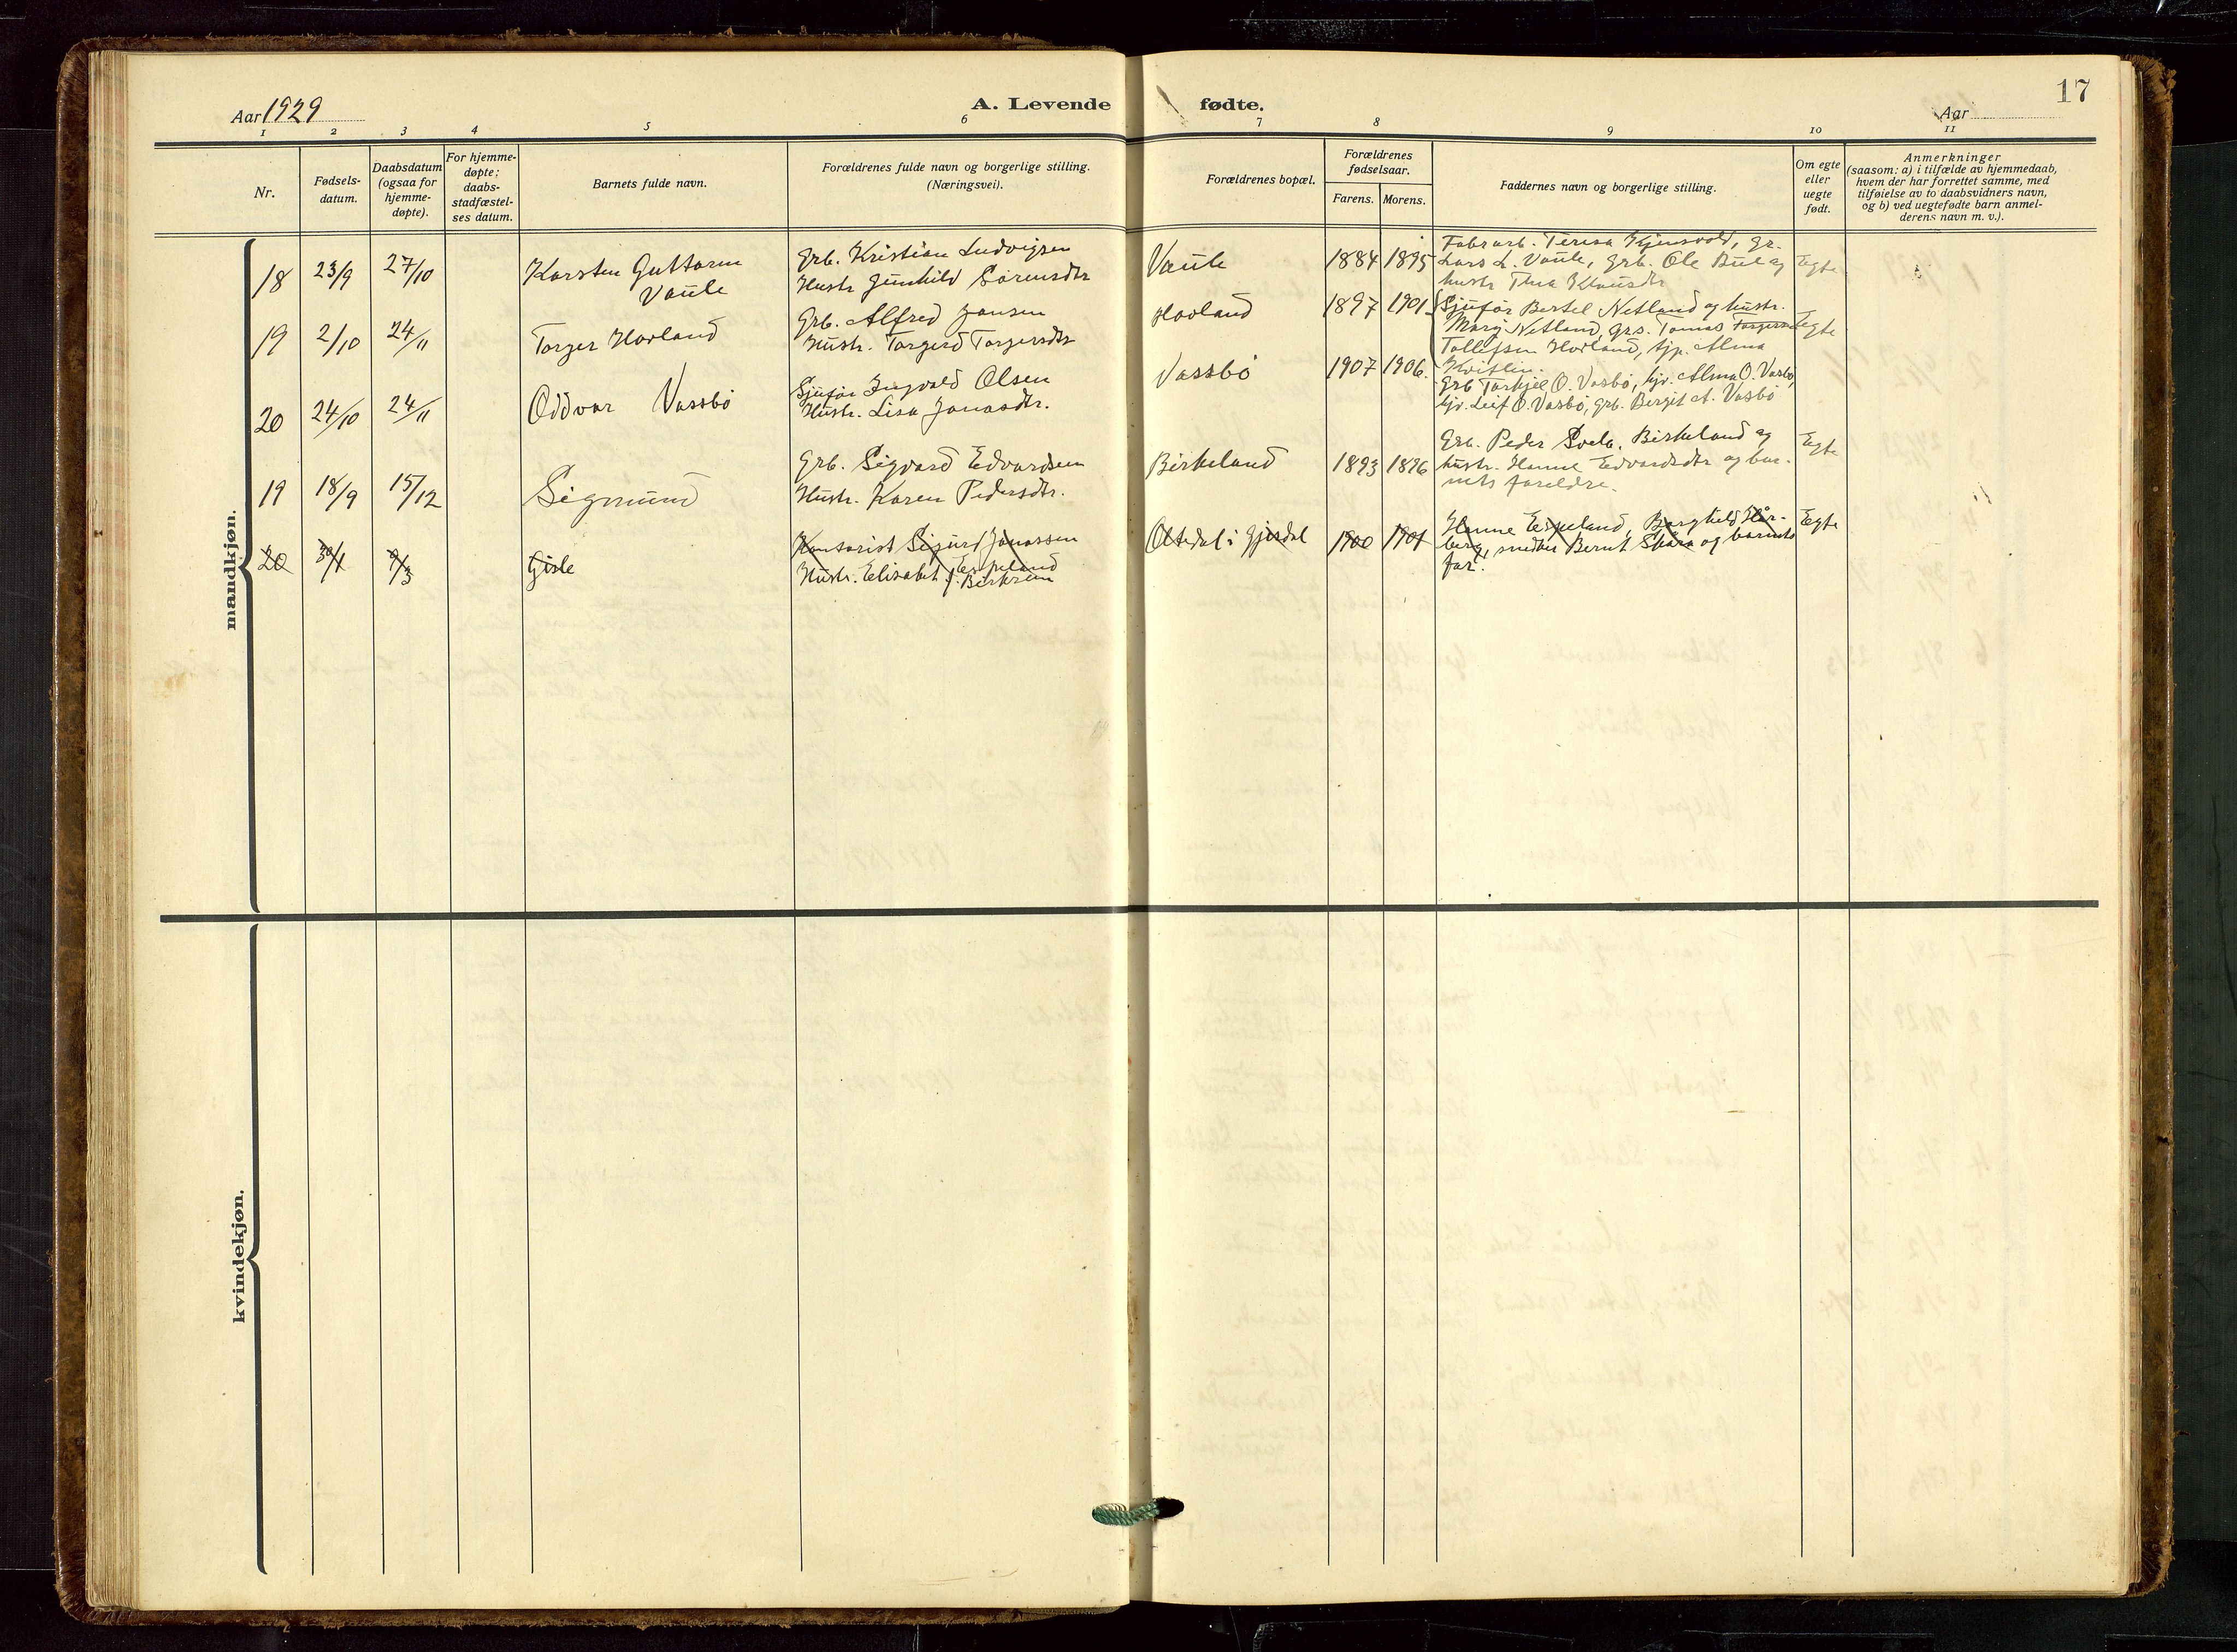 17
Aar 1929
A. Levende fødte.
Aar
1 2 3 4 5 6 7 8 9 10 11
Nr.
Fødsels-
datum.
Daabsdatum
(ogsaa for
hjemme-
døpte).
For hjemme-
døpte;
daabs-
stadfæstel-
ses datum.
Barnets fulde navn.
Forældrenes fulde navn og borgerlige stilling.
(Næringsvei).
Forældrenes bopæl.
Forældrenes
fødselsaar.
Farens. Morens.
Faddernes navn og borgerlige stilling.
Om egte
eller
uegte
født.
Anmerkninger
(saasom: a) i tilfælde av hjemmedaab,
hvem der har forrettet samme, med
tilføielse av to daabsvidners navn,
og b) ved uegtefødte barn anmel-
derens navn m. v.).
mandkjøn.
18 23/9 27/10
Karsten Guttorm
Vaule
Grb. Kristian Ludvigsen
Hustr Gunhild Sørensdtr
Vaule
1884 1895
Fabrarb. Teresa, Gr.
Lars L. Vaule, Grb. Ole Bue og
hustr Thea Klausdtr
Egte
19 2/10 24/11
Torger Hovland
Grb. Alfred Jansen
Hustr. Torgerd Torgersdtr
Hovland
1897 1901
Sjufør Bertel Netland og hustr.
Mary Netland, grs. Tomas Torgersen
Tollefsen Hovland, tjp. Alma
Kvitlin.
Egte
20 24/10 24/11
Oddvar Vassbø
Sjufør Ingvald Olsen
Hustr. Lisa Jonasdtr.
Vassbø
1907 1906.
Grb Torkjel O. Vasbø, hjv. Alma O. Vasbø,
hjv. Leif O. Vasbø, grb. Bergit A. Vasbø
19 18/9 15/12
Sigmund
Grb. Sigvard Edvardsen
Hustr. Karen Pedersdtr.
Birkeland
1893 1896
Grb. Peder Birkeland og
hustr. Hanne Edvardsdtr og bar-
nets foreldre.
Egte
20 30/1 9/3
Gisle
Kontorist Sigurd Jonassen
Hustr. Elisabet f. Espeland
Birkrem
Oltedal i Gjesdal
1900 1901
Hanne Espeland, Borghild Hår-
berg, snedker Bernt Skåra og barnets
far.
Egte
kvindekjøn.